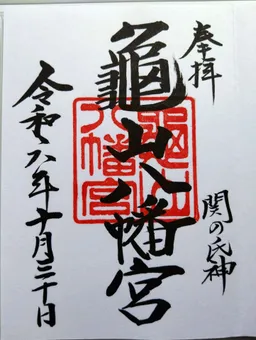 奉拝
関の氏神
龜山八幡宮
龜山八幡宮
令和六年十月三十日